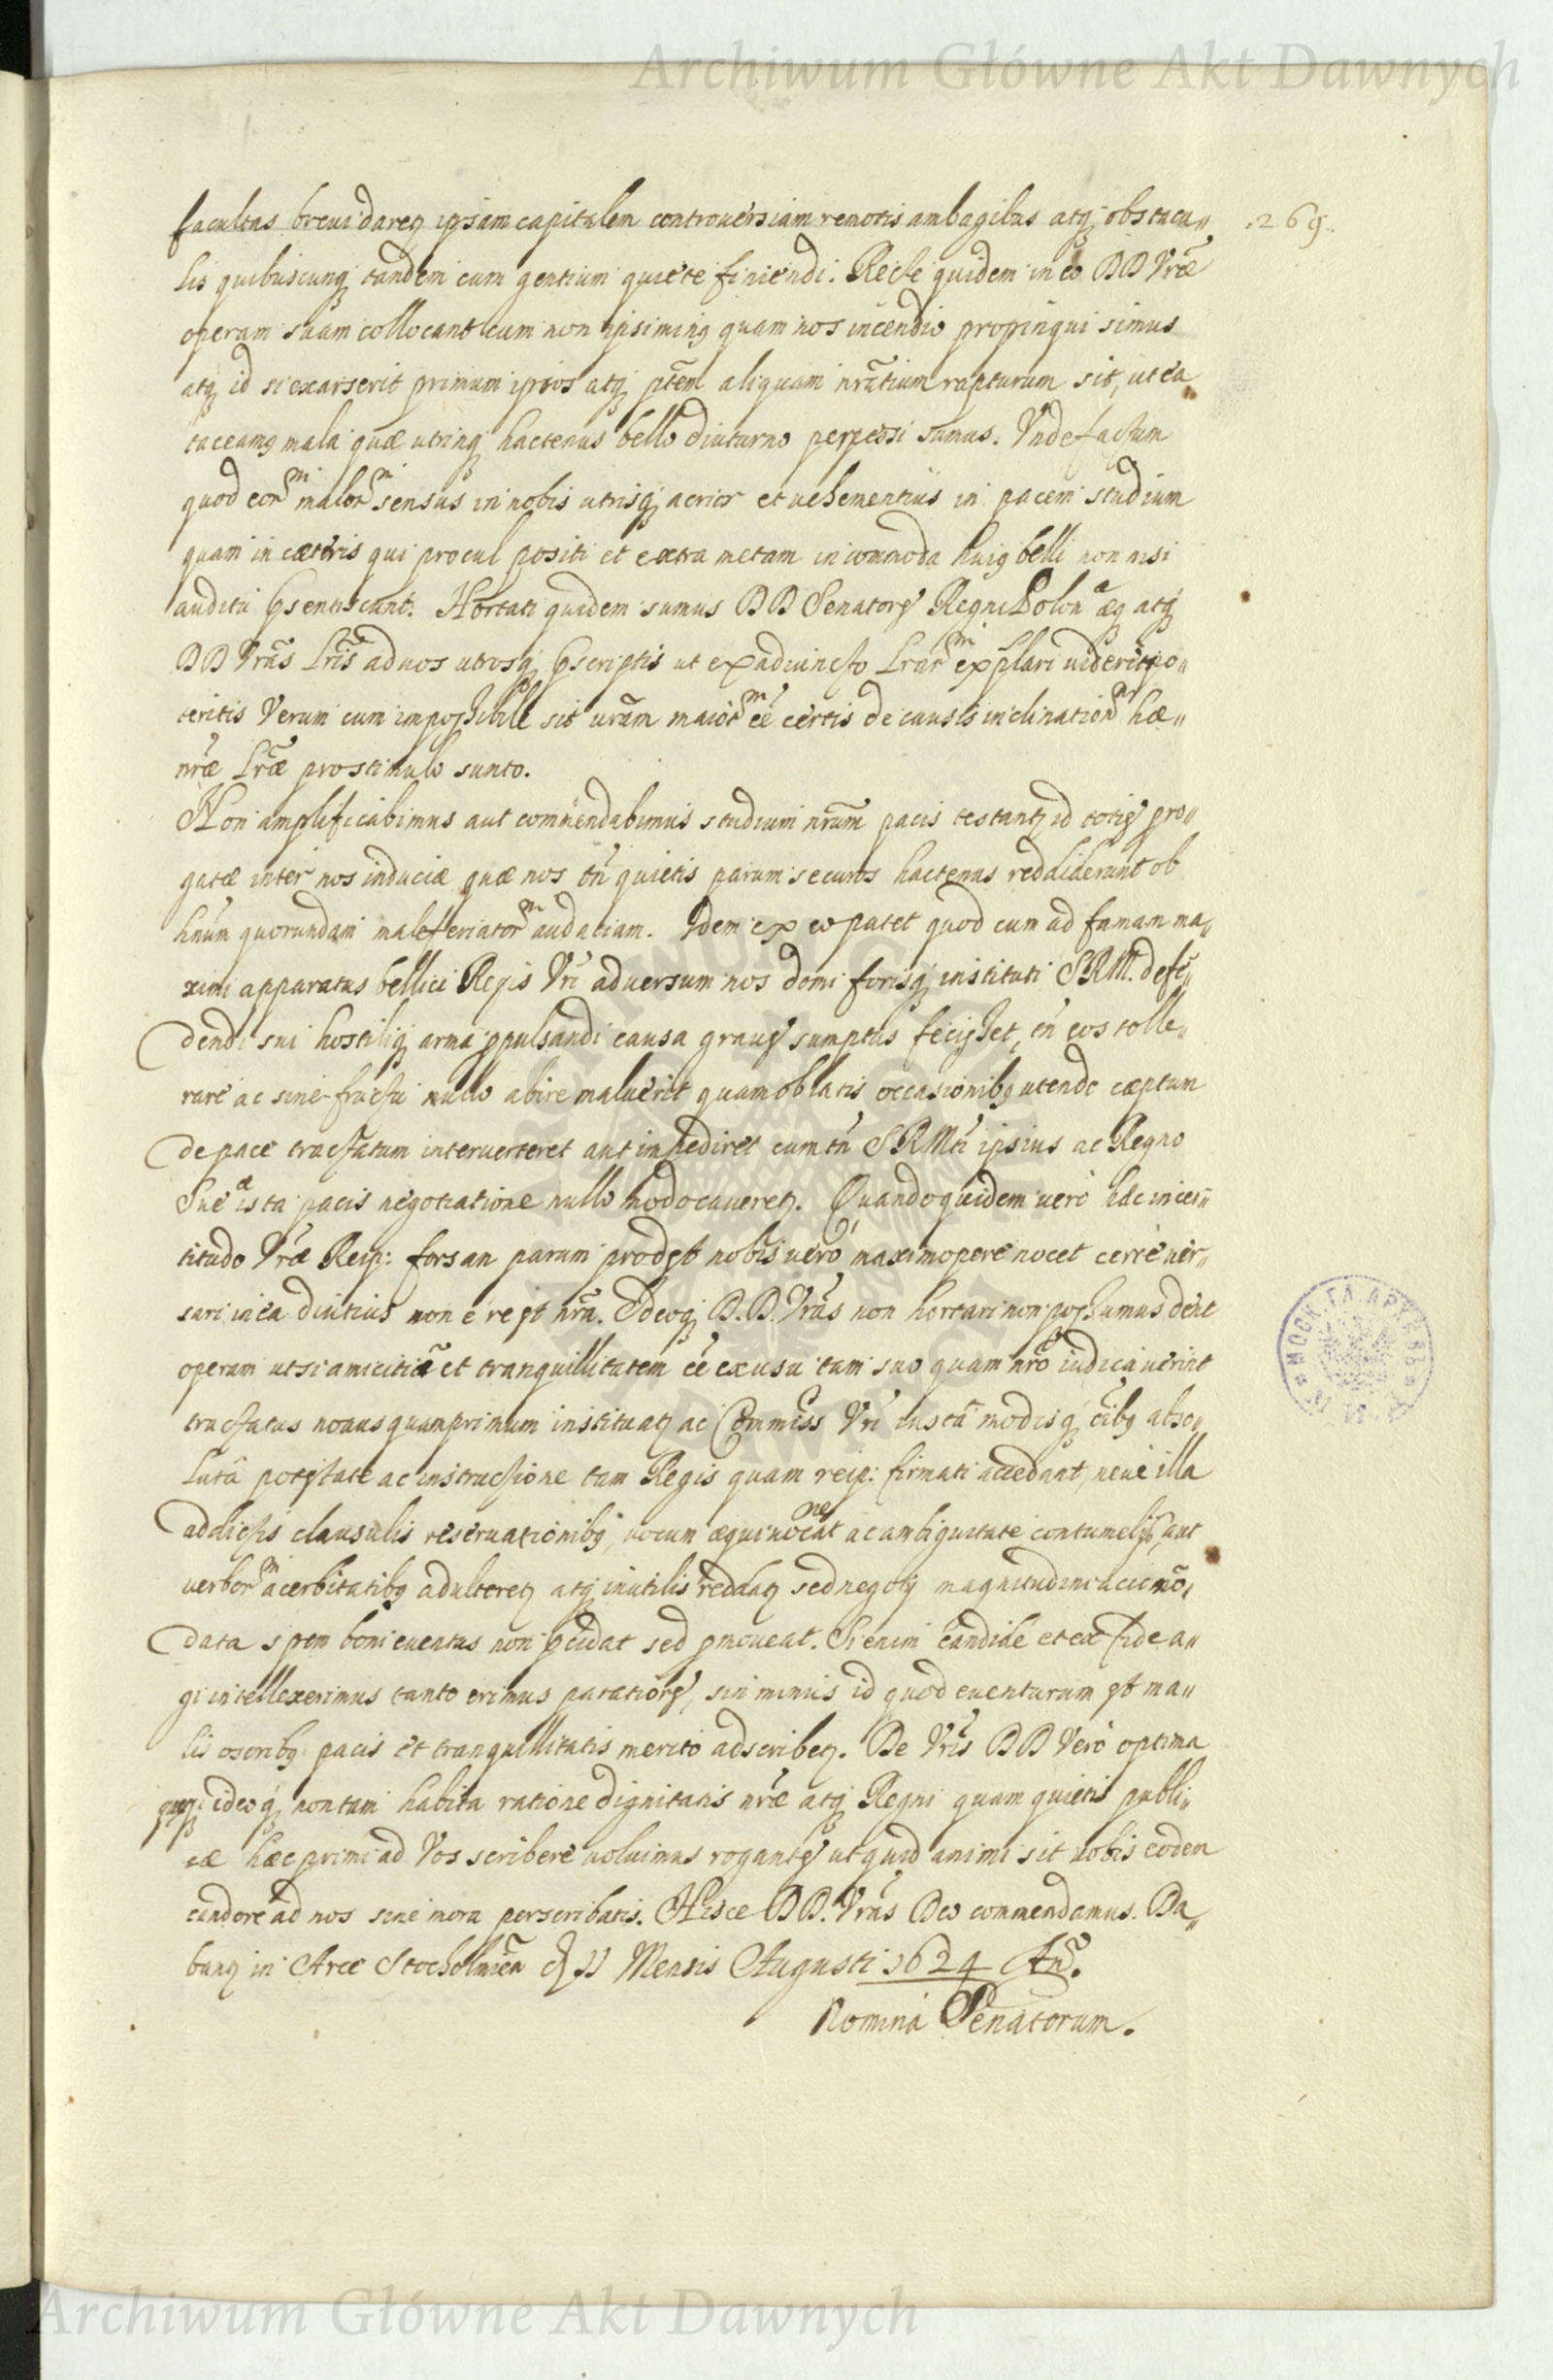 Archiwum Główne Akt Dawnych
facultas breui daretꝫ ipsam capitalem controuersiam remotis ambagibus atqꝫ obstacu„
.269.
lis quibuscunqꝫ tandem cum gentium quiete finiendi. Recte quidem in eo DD Vr̃æ
operam suam collocant cum non ipsi minꝰ quam nos incendio propinqui simus
atqꝫ id si exarserit primum ipsos atqꝫ ptẽm aliquam nr̃atium rapturum sit, ut ea
taceamꝰ mala quæ utrinqꝫ hactenus bello diuturno perpessi sumus. Vnde factum
quod eorᵐ malorᵐ sensus in nobis utrisqꝫ acrior et uehementius in pacem studium
quam in cæteris qui procul positi et extra metam incommoda huiꝰ belli non nisi
auditu p̃sentiscant. Hortati quidem sumus DD Senatorꝭ Regni Polonᵃ æqꝫ atqꝫ
DD Vr̃as Lr̃is ad uos utrosqꝫ p̃scriptis ut ex adiuncto Lrarᵐ explari uideritꝭ po„
teritis Verum cum impossibile sit ur̃am maiorᵐ eẽ certis de causis inclinationᵐ hæ„
nr̃æ Lr̃æ pro stimulo sunto.
Non amplificabimus aut commendabimus studium nr̃um pacis testantꝫ id totiꝭ pro„
gatæ inter nos induciæ quæ nos tñ quietis parum securos hactenus reddiderunt ob
hnũm quorundam maleferiatorᵐ audatiam. Idem ex eo patet quod cum ad famam ma„
ximi apparatus bellici Regis Vr̃i aduersum nos domi forisqꝫ instituti SRMᵗ. defẽ„
dendi sui hostiliqꝫ arma ꝓpulsandi causa grauꝭ sumptus fecisset, tñ eos tolle„
rare ac sine fructu nullo abire maluerit quam oblatis occasionibꝰ utendo cæptum
de pace tractatum interuerteret aut impediret cum tñ SRMti ipsius ac Regno
Sueᵃ ista pacis negotiatione nullo modo caueretꝫ. Quandoquidem uero hæc incer„
titudo Vr̃æ Reip: forsan parum prodest nobis uero maximopere nocet certe uer„
sari in ea diutius non e re est nr̃a. Ideoqꝫ D.D. Vr̃as non hortari non possumus dent
operam ut si amicitiã et tranquillitatem eẽ ex usu tam suo quam nr̃o iudicauerint
tractatus nouus quamprimum instituatꝫ ac Commiss Vr̃i iusta modisqꝫ oĩbꝰ abso„
lutâ potestate ac instructione tam Regis quam reip: firmati accedant, neue illa
addictis clausulis reseruationibꝰ, uocum æquiuocatⁿᵉ ac ambiguitate contumelijs, aut
uerborᵐ acerbitatibꝰ adulteretꝫ atqꝫ inutilis reddatꝫ sed negotij magnitudini accõmo„
data spem boni euentus non p̃cidat sed ꝓmoueat. Si enim candide et ex fide a„
gi intellexerimus tanto erimus paratiorꝭ, sin minus id quod euenturum est ma„
lis osoribꝰ pacis et tranquillitatis merito adscribetꝫ. De Vr̃is DD Vero optima
quæqꝫ ideoqꝫ non tam habita ratione dignitatis nr̃æ atqꝫ Regni quam quietis publi„
cæ hæc primi ad Vos scribere uoluimus rogantꝭ ut quid animi sit uobis eodem
candore ad nos sine mora perscribatis. Hisce DD. Vr̃as Deo commendamus. Da„
bantꝫ in Arce Stocholmeñ d 11 Mensis Augusti 1624 Añ.
Nomina Senatorum.
МОСК. ГЛ. АРХИВЪ М. И. Д.
Archiwum Główne Akt Dawnych